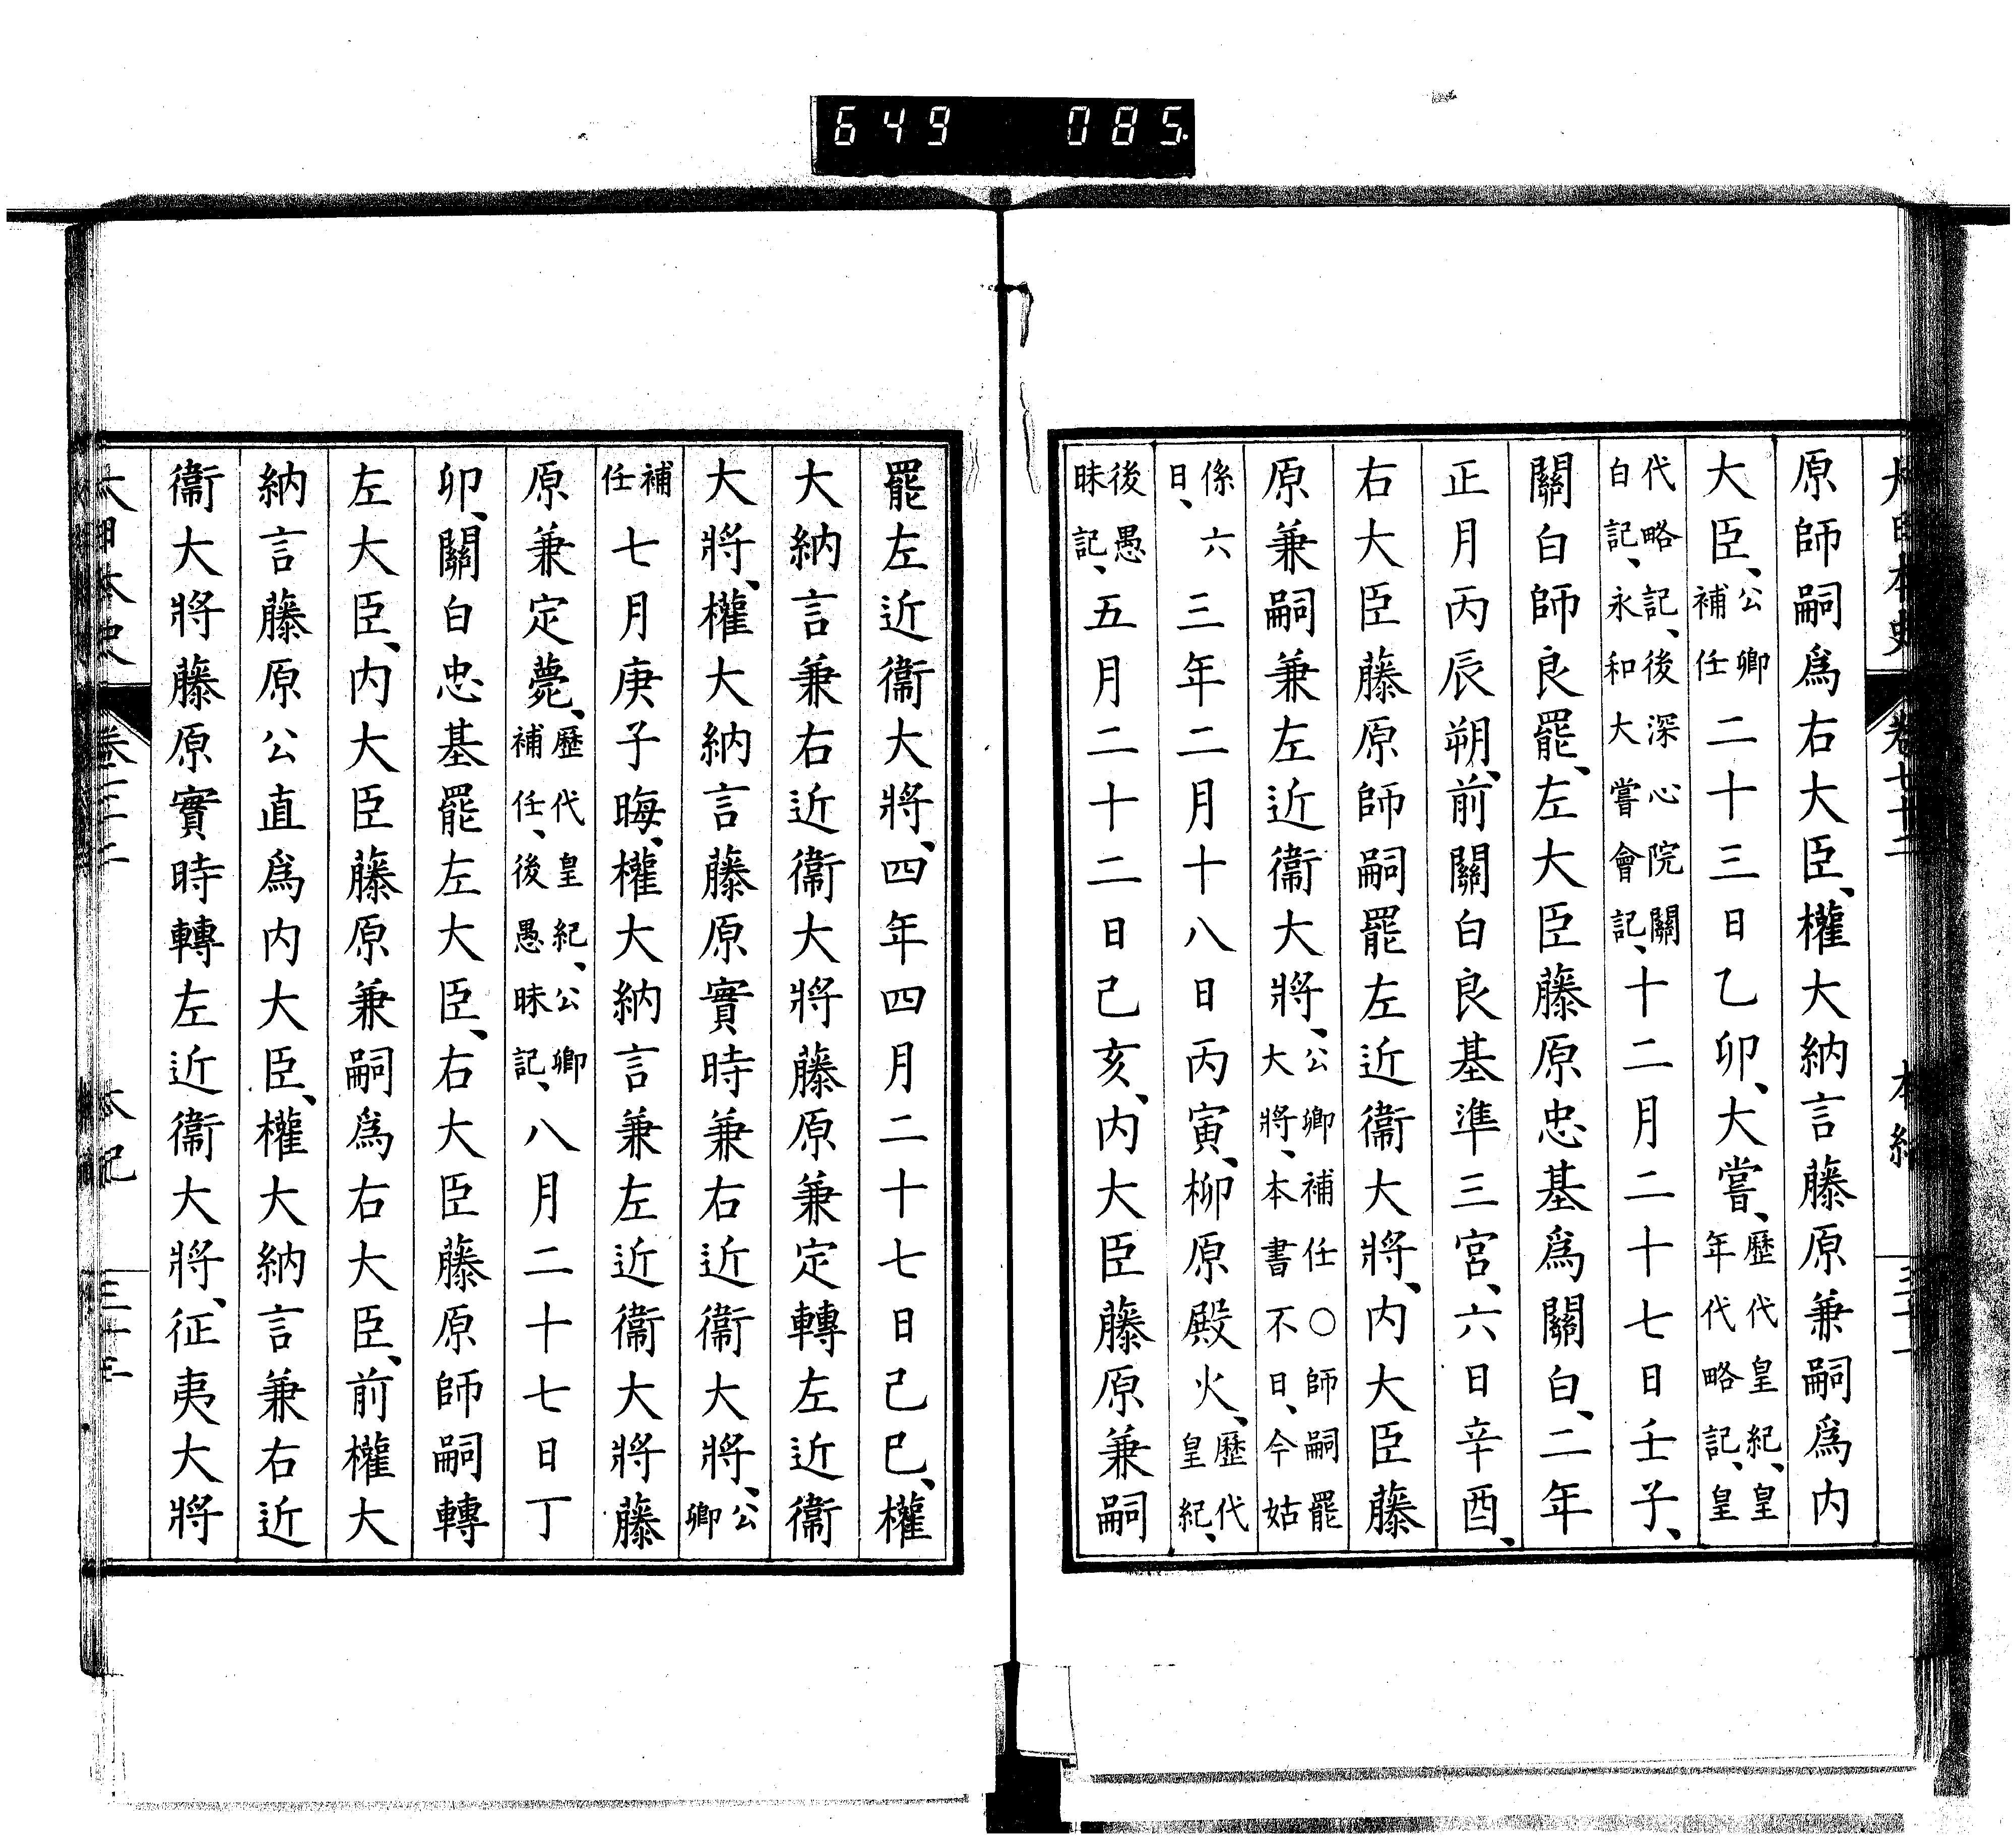 649 085
原師嗣爲右大臣、權大納言藤原兼嗣爲内
大臣、公卿補任二十三日乙卯、大嘗、歷代皇紀、皇年代略記、皇
代略記、後深心院關白記、永和大嘗會記、十二月二十七日壬子、
關白師良罷、左大臣藤原忠基爲關白、二年
正月丙辰朔、前關白良基準三宮、六日辛酉、
右大臣藤原師嗣罷左近衞大將、内大臣藤
原兼嗣兼左近衞大將、公卿補任〇師嗣罷大將、本書不日、今姑
係六日、三年二月十八日丙寅、柳原殿火、歷代皇紀、
後愚昧記、五月二十二日己亥、内大臣藤原兼嗣
罷左近衞大將、四年四月二十七日己巳、權
大納言兼右近衞大將藤原兼定轉左近衞
大將、權大納言藤原實時兼右近衞大將、公卿
補任七月庚子晦、權大納言兼左近衞大將藤
原兼定薨、歷代皇紀、公卿補任、後愚昧記、八月二十七日丁
卯、關白忠基罷左大臣、右大臣藤原師嗣轉
左大臣、内大臣藤原兼嗣爲右大臣、前權大
納言藤原公直爲内大臣、權大納言兼右近
衞大將藤原實時轉左近衞大將、征夷大將